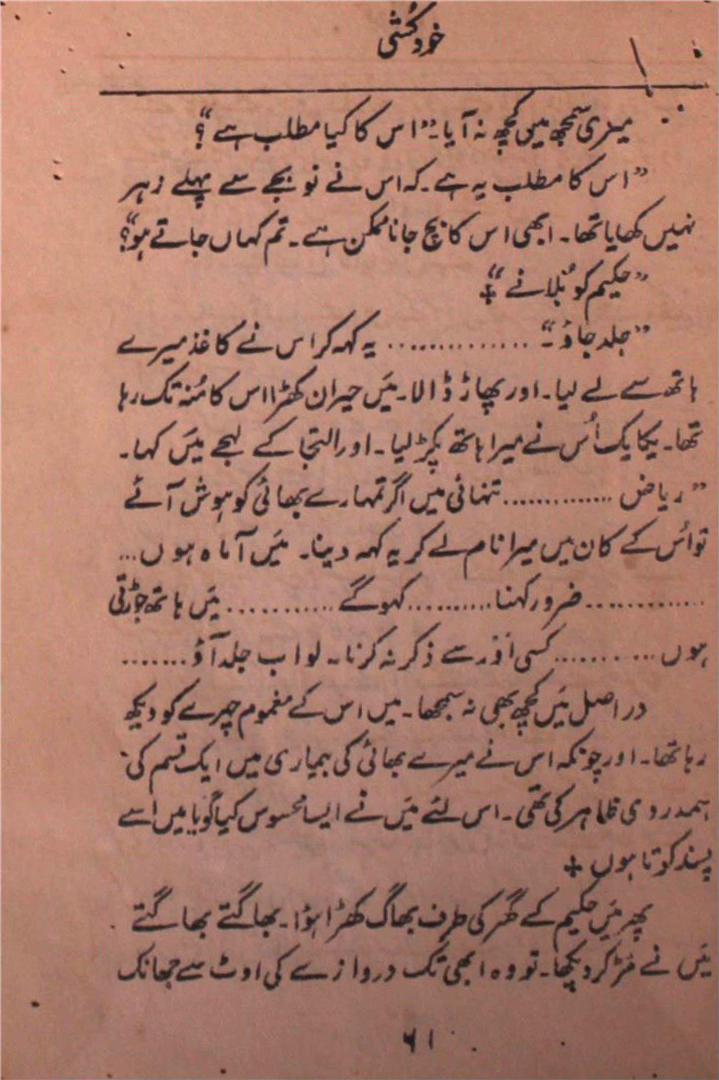 خودکُشی
میری سمجھ میں کچھ نہ آیا۔ ”اس کا کیا مطلب ہے“؟
”اس کا مطلب یہ ہے۔ کہ اس نے نو بجے سے پہلے زہر
نہیں کھایا تھا۔ ابھی اس کا بچ جانا ممکن ہے۔ تم کہاں جاتے ہو“؟
”حکیم کو بُلانے“ +
”جلد جاؤ“۔ .............. یہ کہہ کر اس نے کاغذ میرے
ہاتھ سے لے لیا۔ اور پھاڑ ڈالا۔ مَیں حیران کھڑا اس کا مُنہ تک رہا
تھا۔ یکایک اُس نے میرا ہاتھ پکڑ لیا۔ اور التجا کے لہجے میں کہا۔
”ریاض ............. تنہائی میں اگر تمہارے بھائی کو ہوش آئے
تو اُس کے کان میں میرا نام لے کر یہ کہہ دینا۔ مَیں آمادہ ہوں...
............. ضرور کہنا......... کہو گے ........... مَیں ہاتھ جوڑتی
ہوں ........... کسی اَور سے ذکر نہ کرنا۔ لو اب جلد آؤ.......
در اصل مَیں کچھ بھی نہ سمجھا۔ میں اس کے مغموم چہرے کو دیکھ
رہا تھا۔ اور چونکہ اس نے میرے بھائی کی بیماری میں ایک قسم کی
ہمدردی ظاہر کی تھی۔ اس لئے مَیں نے ایسا محسوس کیا گویا میں اسے
پسند کرتا ہوں +
پھر مَیں حکیم کے گھر کی طرف بھاگ کھڑا ہؤا۔ بھاگتے بھاگتے
مَیں نے مُڑ کر دیکھا۔ تو وہ ابھی تک دروازے کی اوٹ سے جھانک
۶۱